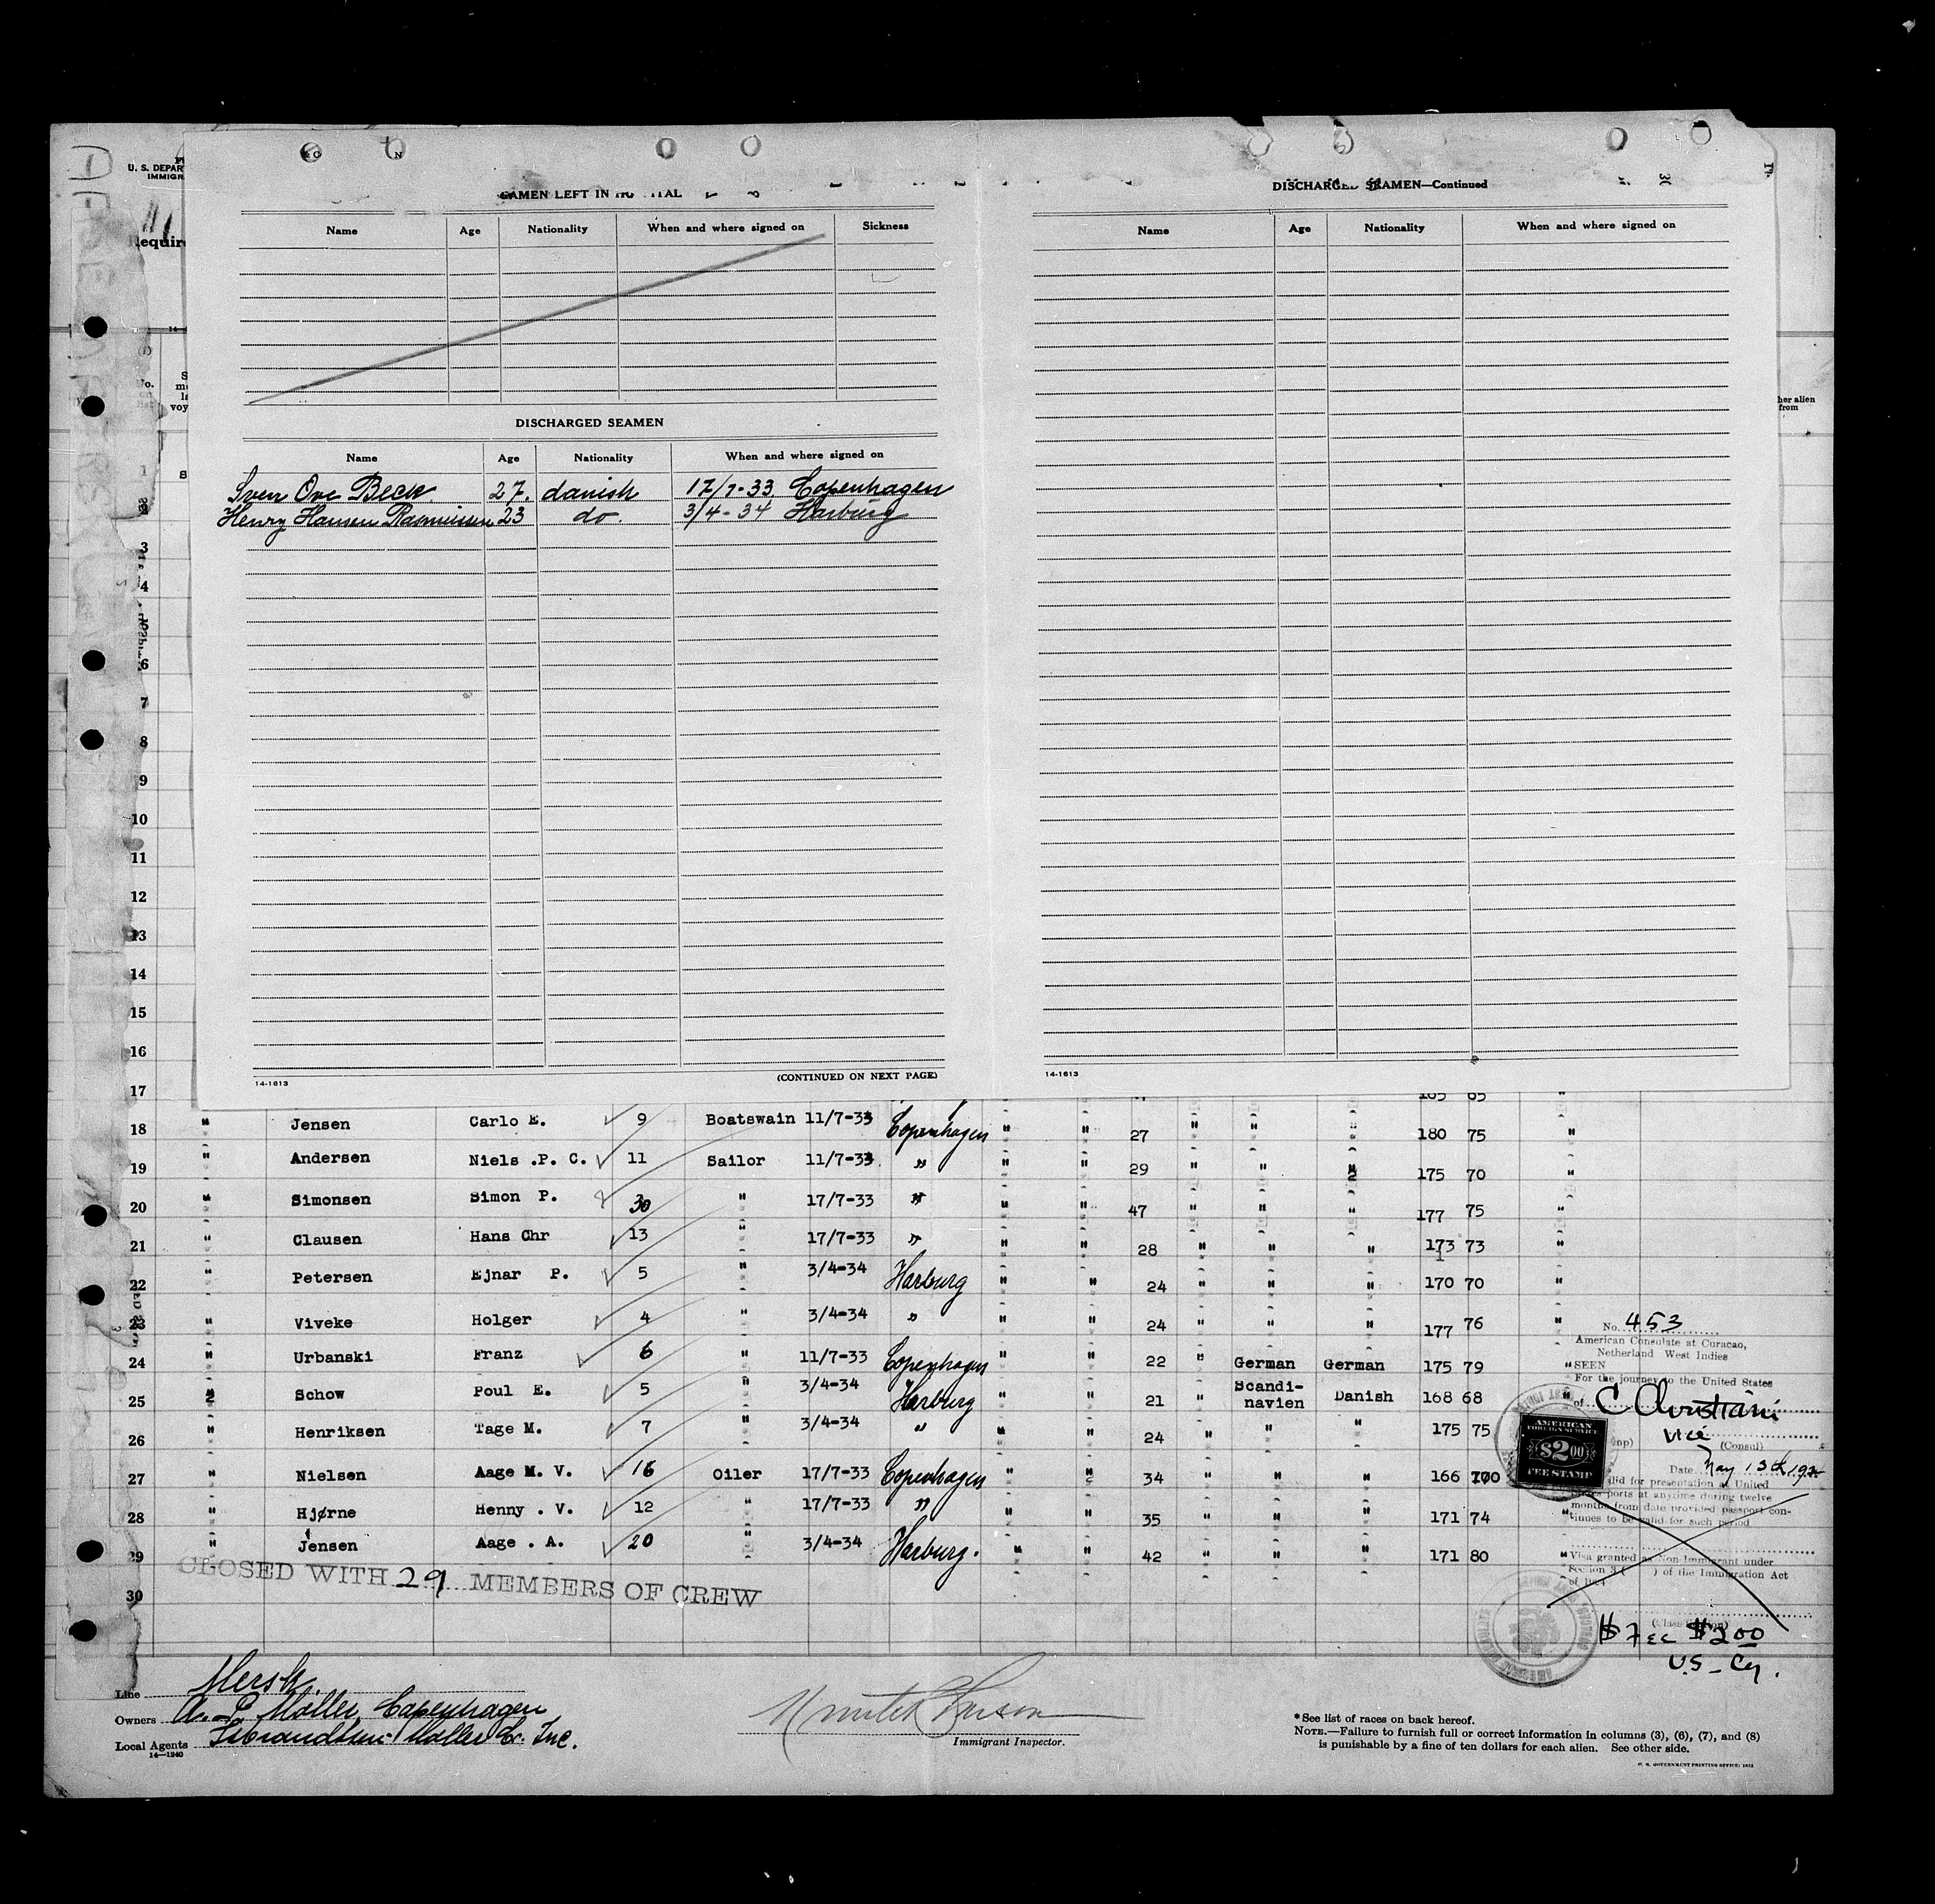 U. S. DEPAR
IMMIGR
equire
SEAMEN LEFT IN HOSPITAL
Name Age Nationality When and where signed on Sickness
DISCHARGED SEAMEN
Name Age Nationality When and where signed on
Sven Ove Beck 27. danish 17/7-33 Copenhagen
Henry Hansen Rasmussen 23 do. 3/4-34 Harburg
14-1613 (CONTINUED ON NEXT PAGE)
DISCHARGED SEAMEN—Continued
Name Age Nationality When and where signed on
14-1613
her alien
from
1
3
4
5
6
7
8
9
10
11
12
13
14
15
16
17 165 65 "
18 " Jensen Carlo E. 9 Boatswain 11/7-33 Copenhagen " " 27 " " " 180 75 "
19 " Andersen Niels .P. C. 11 Sailor 11/7-33 " " " 29 " " " 175 70 "
20 " Simonsen Simon P. 30 " 17/7-33 " " " 47 " " " 177 75 "
21 " Clausen Hans Chr 13 " 17/7-33 " " " 28 " " " 173 73 "
22 " Petersen Ejnar P. 5 " 3/4-34 Harburg " " 24 " " " 170 70 "
23 " Viveke Holger 4 " 3/4-34 " " " 24 " " " 177 76 "
24 " Urbanski Franz 6 " 11/7-33 Copenhagen " " 22 " German German 175 79 "
25 " Schow Poul E. 5 " 3/4-34 Harburg " " 21 " Scandi-navien Danish 168 68 "
26 " Henriksen Tage M. 7 " 3/4-34 " " " 24 " " " 175 75
27 " Nielsen Aage M. V. 16 Oiler 17/7-33 Copenhagen " " 34 " " " 166 100
28 " Hjørne Henny . V. 12 " 17/7-33 " " " 35 " " " 171 74 "
29 " Jensen Aage . A. 20 " 3/4-34 Harburg. " " 42 " " " 171 80 "
30
CLOSED WITH 29 MEMBERS OF CREW
No. 453
American Consulate at Curacao,
Netherland West Indies
SEEN
For the journey to the United States
of C Christiani
Vice
(Consul)
AMERICAN
FOREIGN SERVICE
$2.00
FEE STAMP
Date May 13th 193
lid for presentation at United
ports at anytime during twelve
months from date provided passport con-
tinues to be valid for such period
Visa granted as Non-Immigrant under
Section 3 ( ) of the Immigration Act
of 1924
(Classification)
$ Fee $2.00
U.S. Cy.
Line Mersk.
Owners A. P. Möller, Copenhagen
Local Agents Isbrandtsen-Moller Co. Inc.
14—1240
Immigrant Inspector.
*See list of races on back hereof.
NOTE.—Failure to furnish full or correct information in columns (3), (6), (7), and (8)
is punishable by a fine of ten dollars for each alien. See other side.
U. S. GOVERNMENT PRINTING OFFICE: 1932